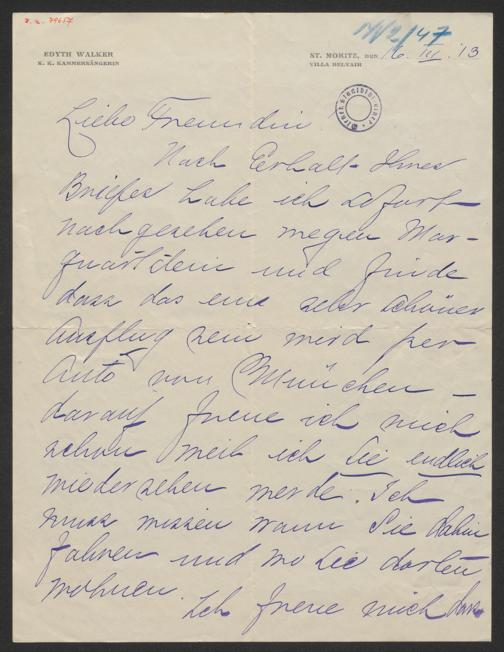 J. N. 79657
M/2/47
EDYTH WALKER
K. K. KAMMERSÄNGERIN
ST. MORITZ, DEN 16. III. 13
VILLA BELVAIR
Liebe Freundin
Nach Erhalt Ihres
Briefes habe ich sofort
nachgesehen wegen Mar-
quartstein und finde
dass das eine sehr schöner
Ausflug sein wird per
Auto von München –
darauf freue ich mich
schon weil ich Sie endlich
wiedersehen werde. Ich
muss wissen wann Sie dahin
fahren und wo Sie dorten
wohnen.
Ich freue mich dass